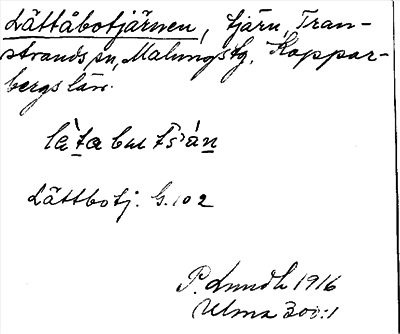 Lättåbotjärnen, tjärn, Tran-
strands sn, Malungs tg, Koppar-
bergs län.
Lättbotj. G. 102
P. Lundh 1916
Ulma 300:1